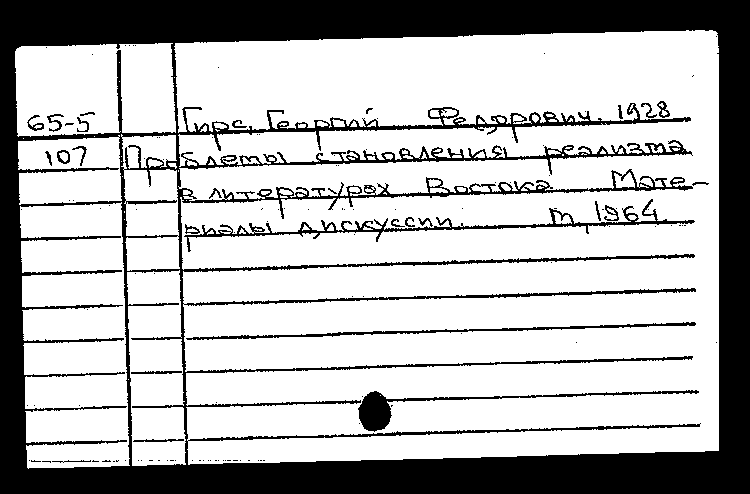 65-5 Гирс, Георгий Федорович. 1928
107 Проблемы становления реализма
в литературах Востока Мате-
риалы дискуссии. М, 1964.